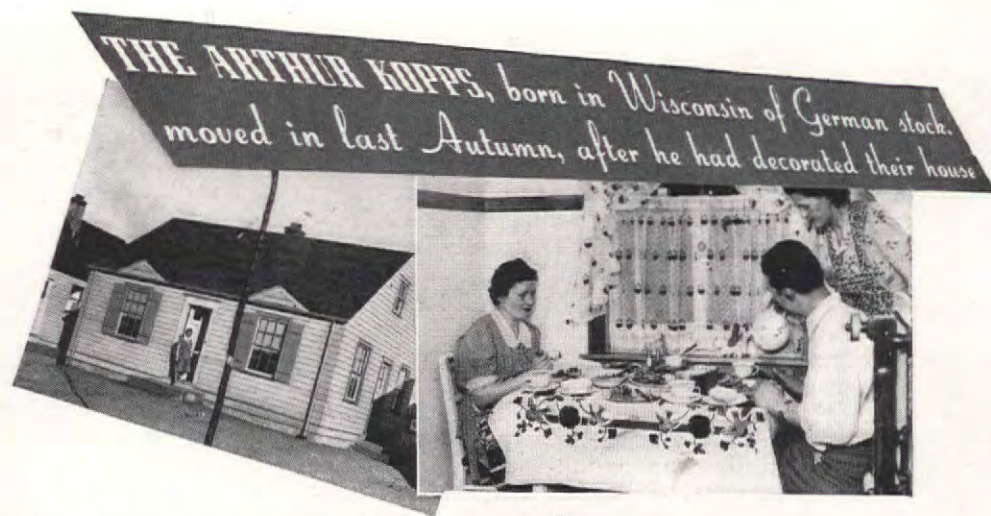 THE ARTHUR KOPPS, born in Wisconsin of German stock.
moved in last Autumn, after he had decorated their house